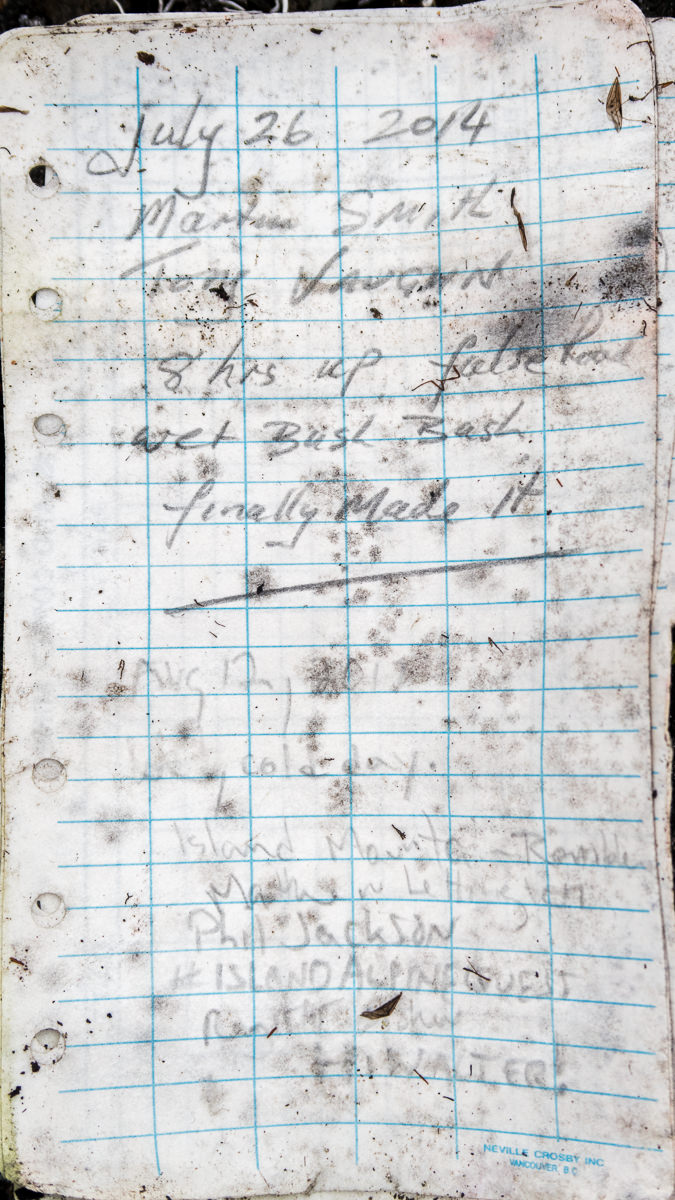 July 26 2014
Martin Smith
Tony Vaughn
8 hrs up, false
wet Bush Bash
finally Made It
Aug 12,
cold day.
Island Mountain
Phil Jackson
# ISLANDALPINEQUEST
NEVILLE CROSBY INC
VANCOUVER B C